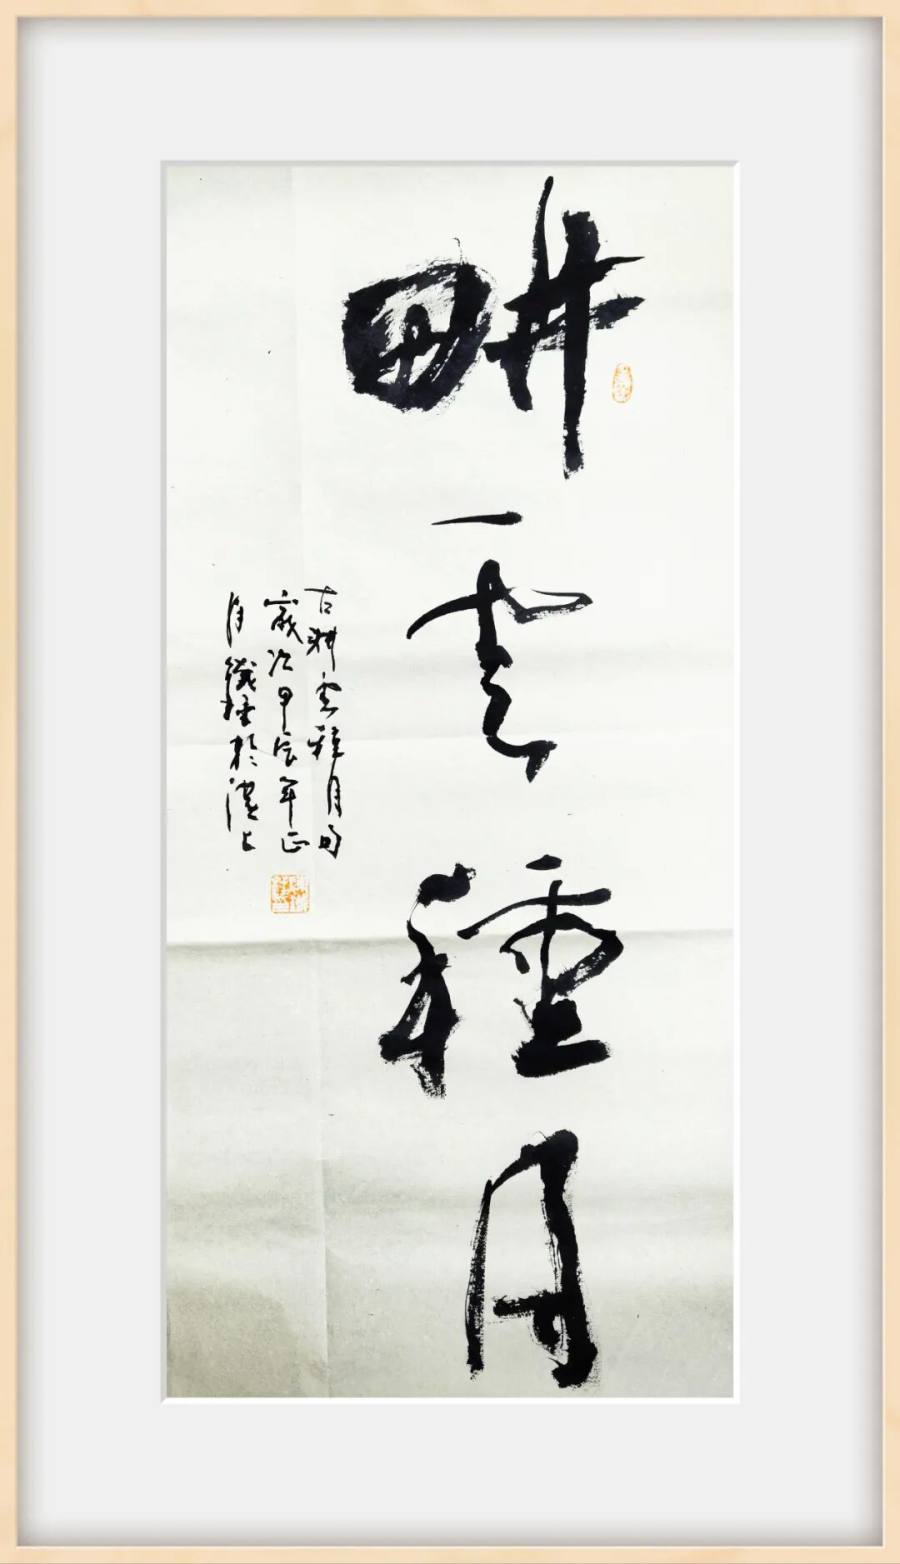 畊雲種月
古耕雲種月句
歲次甲辰年正
月 於漢上